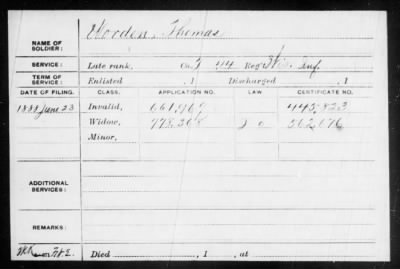 NAME OF SOLDIER: Worden, Thomas
SERVICE: Late rank, Co. 44 Reg't Wis. Inf.
TERM OF SERVICE: Enlisted , 1 Discharged , 1
DATE OF FILING. CLASS. APPLICATION NO. LAW CERTIFICATE NO.
1888 June 23 Invalid, 661,969 445,823
Widow, 778,368 562,676
Minor,
ADDITIONAL SERVICES:
REMARKS:
Died , 1 , at